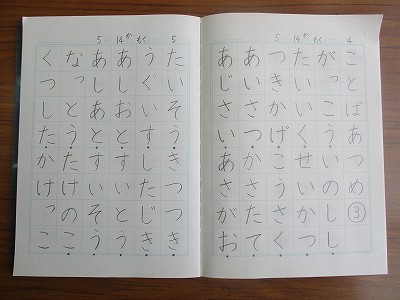 5 14 か もく 4
ことばあつめ③
がっこういのしし
たいいくせいかつ
つきかげこうさく
あいさつかさたて
あじさいあさがお
5 14 か もく 5
たいそうきつつき
うぐいすしたじき
あしおとすいとう
あしあとすいそう
なっとうたけのこ
くつしたかけっこ